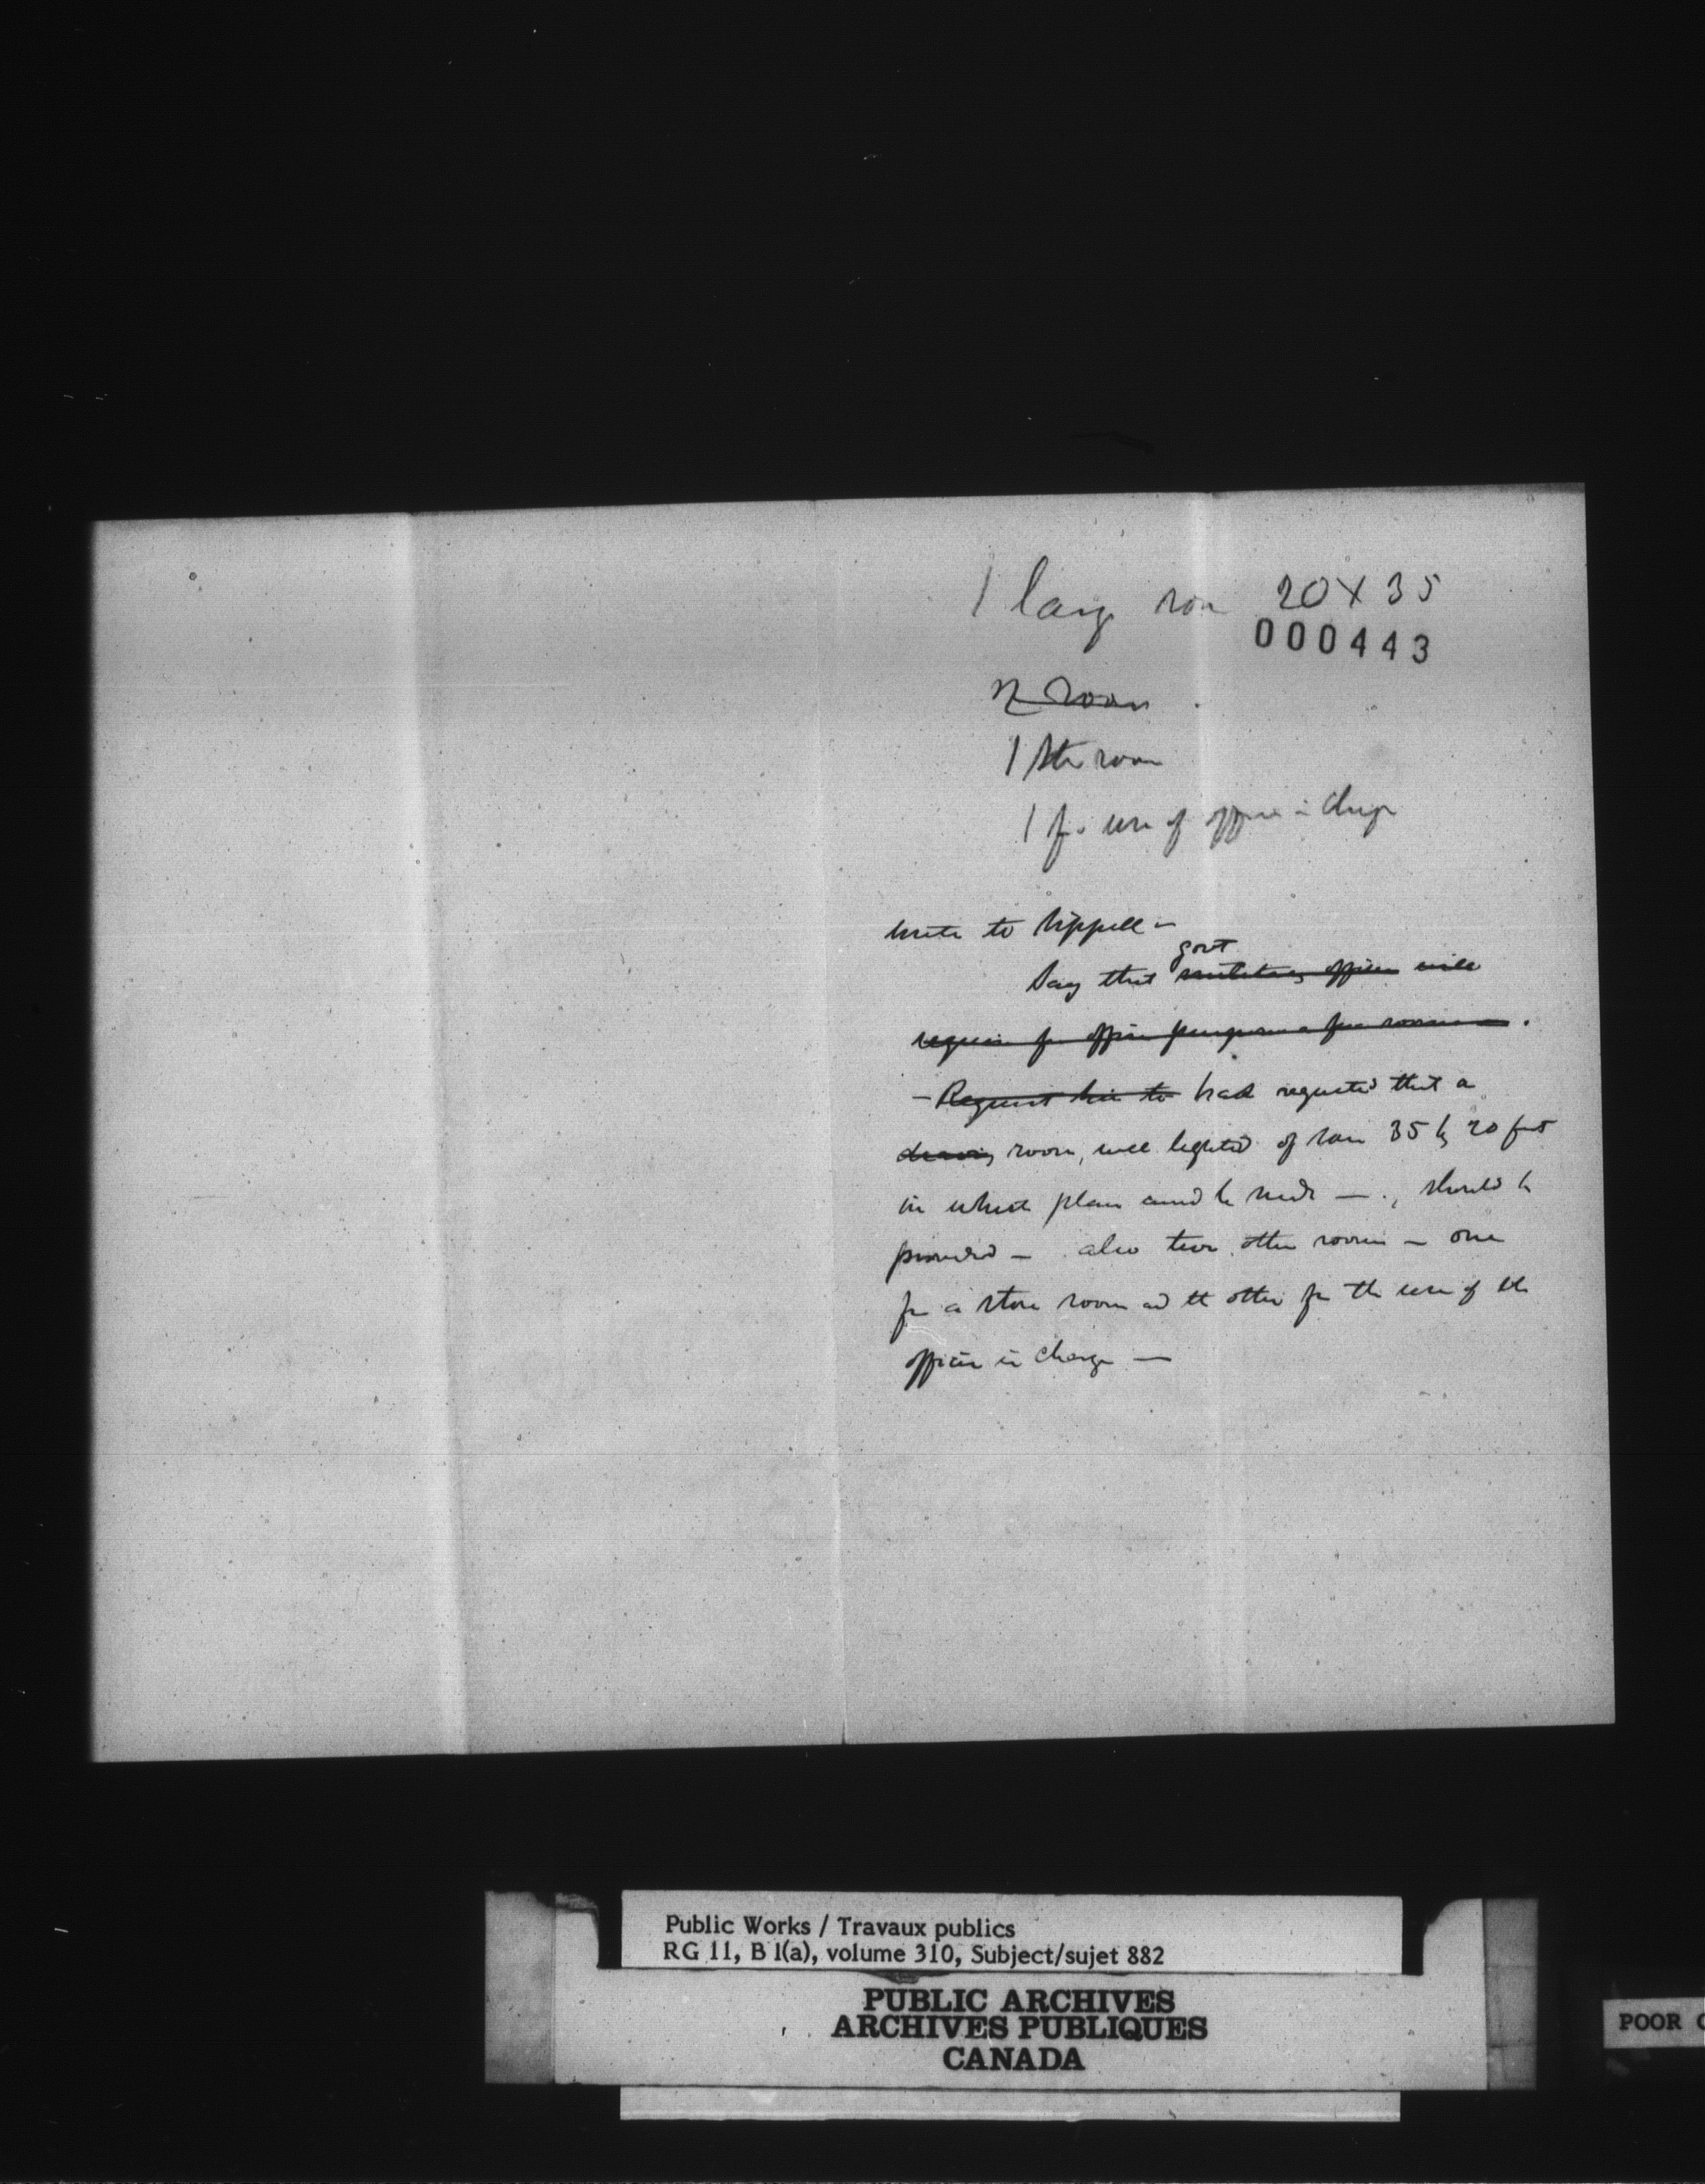 1 large room 20 X 35
000443
room
1 Store room
1 for use of officer in charge
write to Sippell -
govt
Say that military officer will
require for office purposes a few rooms - .
- Request him to had requested that a
drawing room, well lighted of say 35 by 20 feet
in which plans could be made - . , should be
provided - also two other rooms - one
for a store room and the other for the use of the
officer in charge -
Public Works / Travaux publics
RG 11, B 1(a), volume 310, Subject/sujet 882
PUBLIC ARCHIVES
ARCHIVES PUBLIQUES
CANADA
POOR